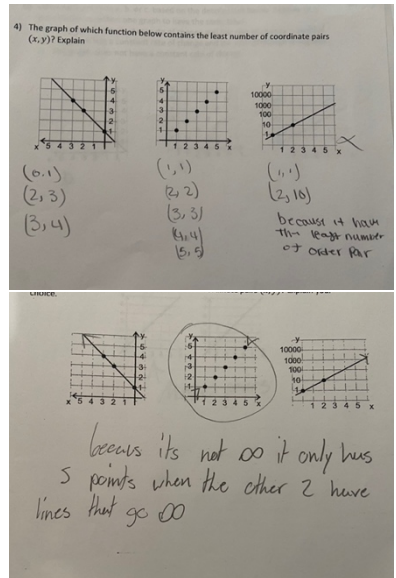 4) The graph of which function below contains the least number of coordinate pairs
(x, y)? Explain
y y y
5 4 3 2 1
x 5 4 3 2 1
5 4 3 2 1
1 2 3 4 5 x
10000
1000
100
10
1
1 2 3 4 5 x
(0,1) (1,1) (1,1)
(2,3) (2,2) (2,10)
(3,4) (3,3)
(4,4)
(5,5)
because it have
the least number
of order Pair
choice.
y y y
5 4 3 2 1
x 5 4 3 2 1
5 4 3 2 1
1 2 3 4 5 x
10000
1000
100
10
1
1 2 3 4 5 x
becaus its not ∞ it only has
5 points when the other 2 have
lines that go ∞